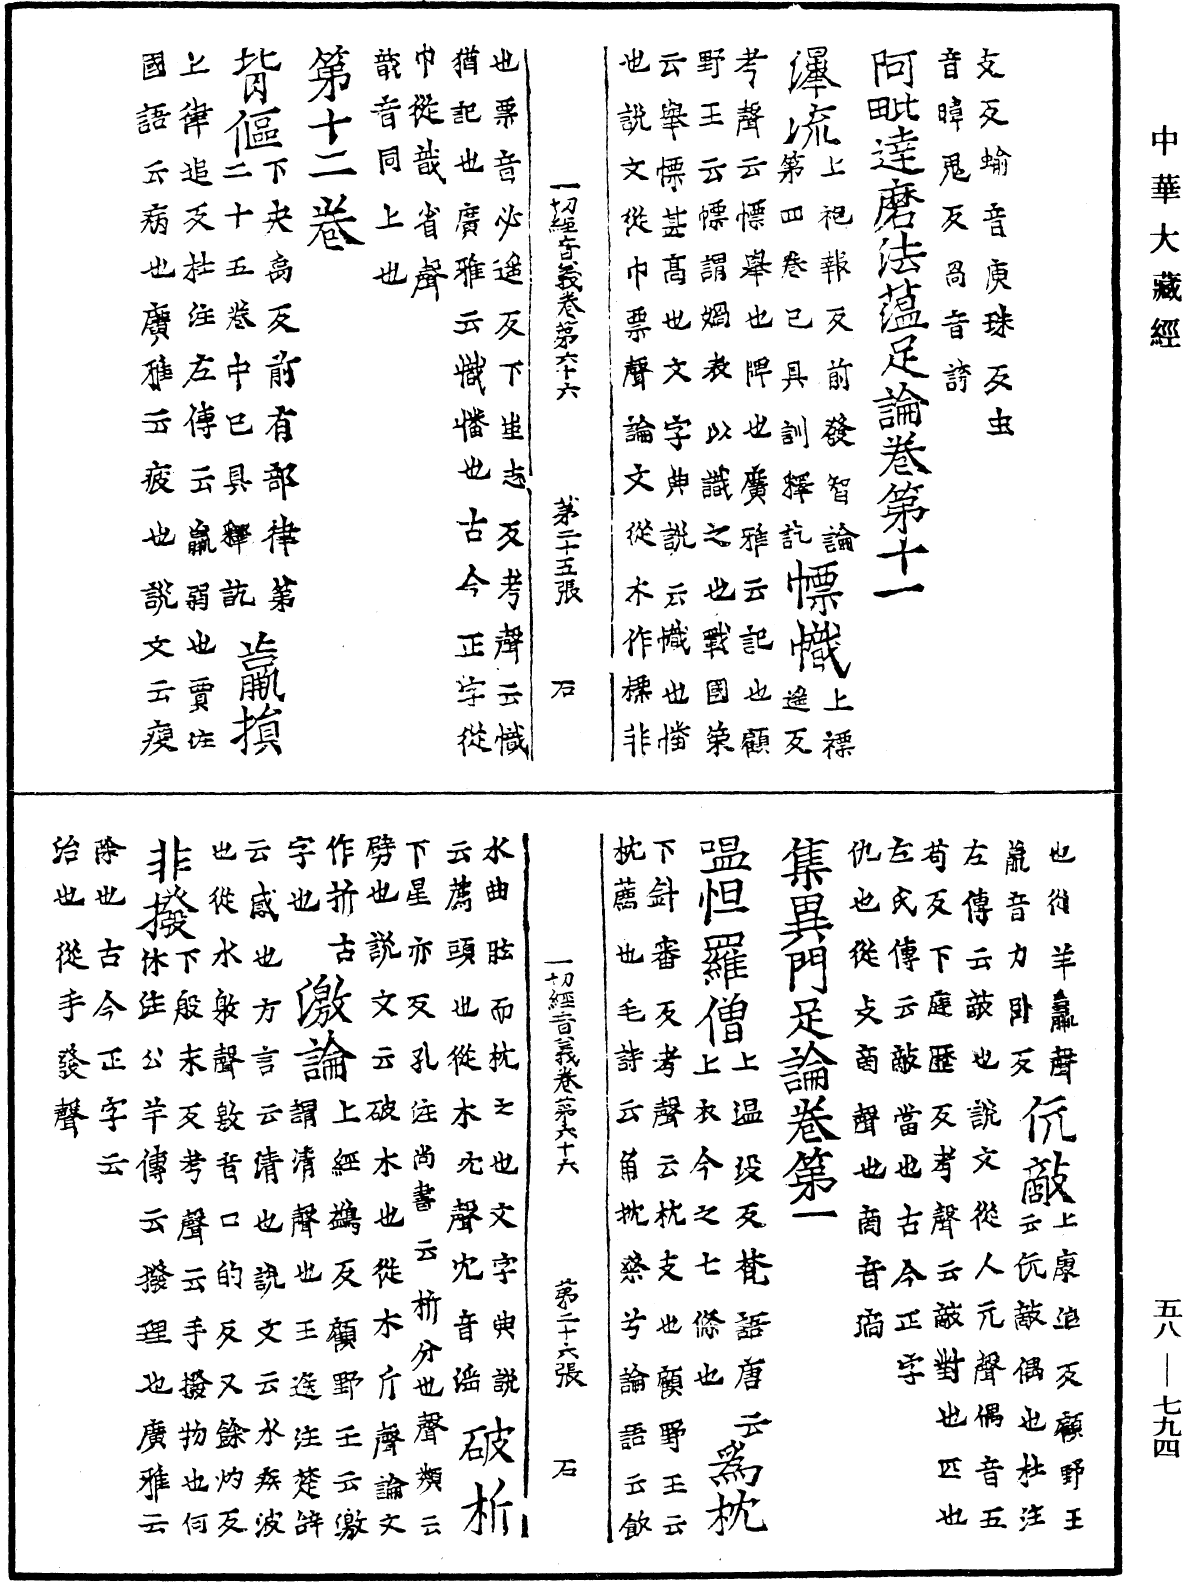 中華大藏經
攴反蝓音庾珠反虫
音暐鬼反咼音誇
阿毗達磨法蘊足論卷第十一
瀑流上袍報反前發智論
第四卷已具訓釋訖幖幟上褾遥反
考聲云幖舉也牌也廣雅云記也顧
野王云幖謂𧝓表以識之也戰國策
云舉幖甚高也文字典說云幟也憣
也說文從巾票聲論文從木作標非
一切經音義卷第六十六 第二十五張 石
也票音必遥反下蚩志反考聲云幟
猶記也廣雅云幟憣也古今正字從
巾從戠省聲
戠音同上也
第十二卷
背傴下夬禹反前有部律第
二十五卷中已具釋訖羸損
上律追反杜注左傳云羸弱也賈注
國語云病也廣雅云疲也說文云瘦
也從羊𦝠聲
𦝠音力卧反伉敵上康浪反顧野王
云伉敵偶也杜注
左傳云敵也說文從人亢聲偶音五
苟反下庭歷反考聲云敵對也匹也
左氏傳云敵當也古今正字
仇也從攴啇聲也啇音滴
集異門足論卷第一
嗢怛羅僧上温没反梵語唐云
上衣今之七條也為枕
下針審反考聲云枕支也顧野王云
枕薦也毛詩云角枕粲兮論語云飲
一切經音義卷第六十六 第二十六張 石
水曲肱而枕之也文字典說
云薦頭也從木冘聲冘音滛破析
下星亦反孔注尚書云析分也聲類云
劈也說文云破木也從木斤聲論文
作折古
字也激論上經鷁反顧野王云激
謂清聲也王逸注楚辞
云感也方言云清也說文云水疾波
也從水敫聲敫音口的反又餘灼反
非撥下般末反考聲云手撥物也何
休注公羊傳云撥理也廣雅云
除也古今正字云
治也從手發聲
五八—七九四